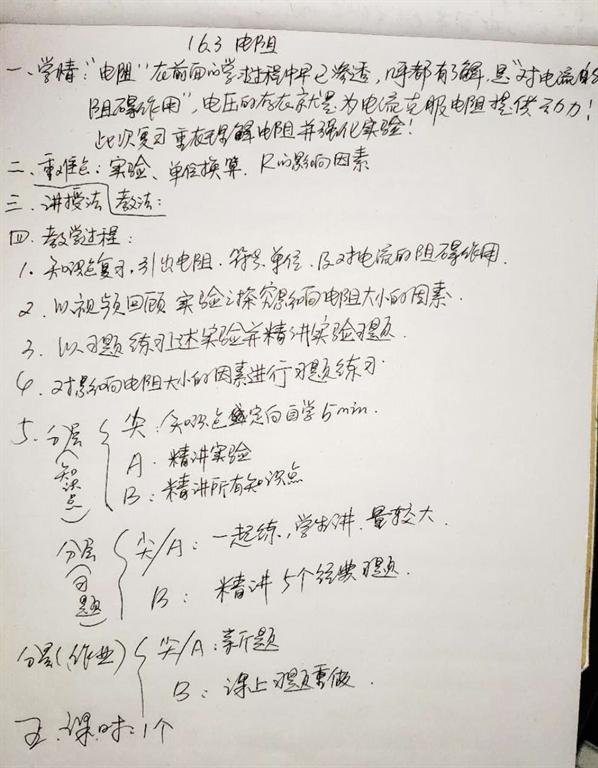 16.3 电阻
一、学情："电阻"在前面的学过程中早已渗透，几乎都有了解，是"对电流的
阻碍作用"，电压的存在就是为电流克服电阻提供动力！
此次复习重在理解电阻并强化实验！
二、重难点：实验、单位换算、R的影响因素
三、讲授法 教法：
四、教学过程：
1. 知识复习，引出电阻、符号、单位、及对电流的阻碍作用.
2. 以视频回顾实验：探究影响电阻大小的因素.
3. 以习题练习上述实验并精讲实验习题.
4. 对影响电阻大小的因素进行习题练习
5. 分层（知识点） 尖：知识定向自学5min.
A. 精讲实验
B：精讲所有知识点
分层（习题） 尖/A：一起练，学生讲. 量较大.
B：精讲5个经典习题.
分层（作业） 尖/A：新题
B：课上习题重做.
五. 课时：1个